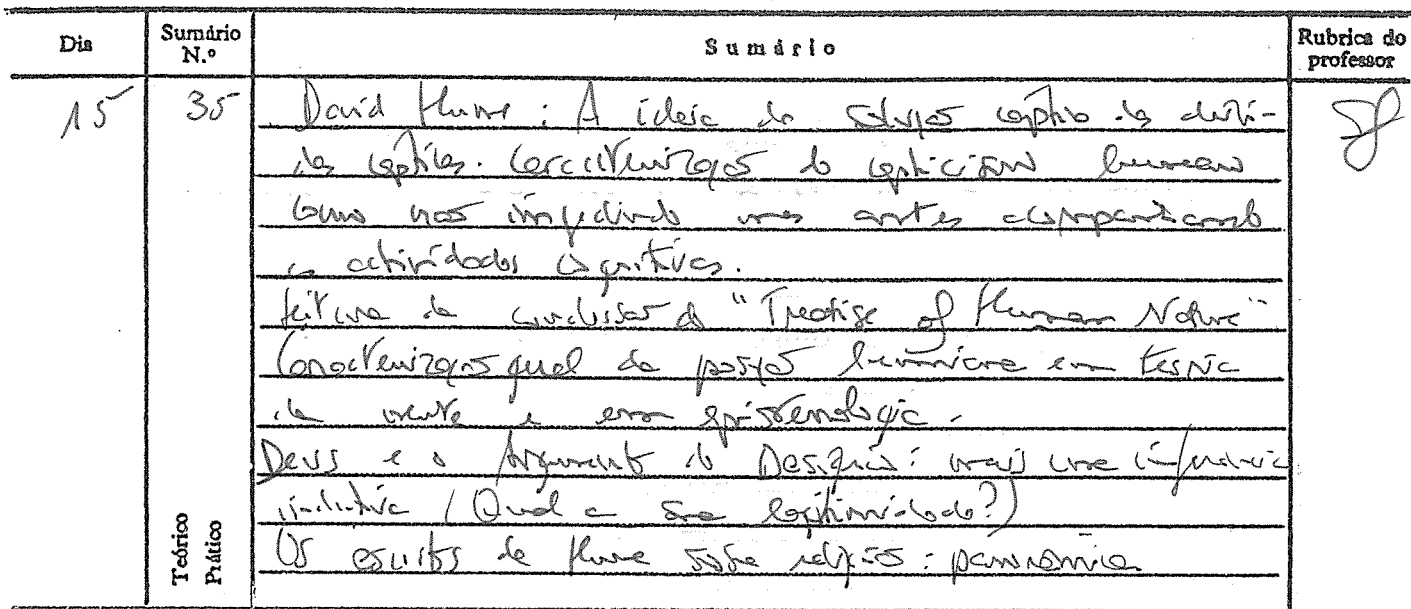 Dia
Sumário N.º
Sumário
Rubrica do professor
15
35
David Hume: A ideia de solução céptica das dúvi-
das cépticas. Caracterização do cepticismo humeano
como não impedindo mas antes acompanhando
as actividades cognitivas.
Leitura da conclusão do "Treatise of Human Nature"
Caracterização geral da posição humeana em teoria
da mente e em epistemologia.
Deus e o Argumento do Desígnio: mais uma inferência
indutiva (Qual a sua legitimidade?)
Os escritos de Hume sobre religião: panorâmica
Teórico
Prático